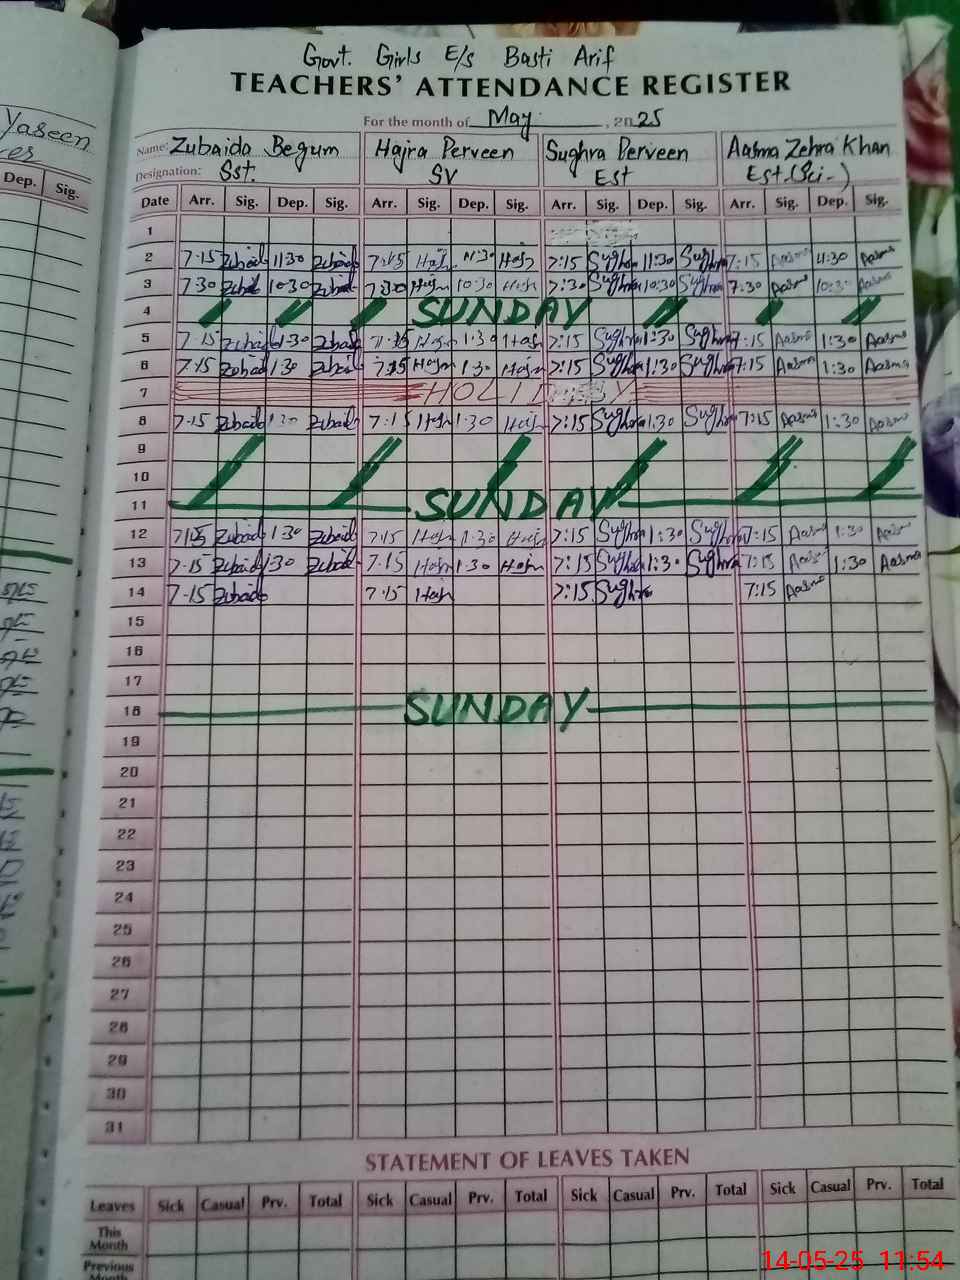 Govt. Girls E/s Basti Arif
TEACHERS' ATTENDANCE REGISTER
For the month of May, 2025
Yaseen
Name: Zubaida Begum Hajra Perveen Sughra Perveen Aasma Zehra Khan
Designation: Sst. SV Est Est.(Sci-)
Dep. Sig.
Date Arr. Sig. Dep. Sig. Arr. Sig. Dep. Sig. Arr. Sig. Dep. Sig. Arr. Sig. Dep. Sig.
1
2 7-15 Zubaid 11:30 Zubaid 7-15 Haj 11:30 Haj 7:15 Sughra 11:30 Sughra 7:15 Aasma 11:30 Aasma
3 7-30 Zubaid 10:30 Zubaid 7:30 Haj 10:30 Haj 7:30 Sughra 10:30 Sughra 7:30 Aasma 10:30 Aasma
4 SUNDAY
5 7-15 Zubaid 1:30 Zubaid 7-15 Haj 1:30 Haj 7:15 Sughra 1:30 Sughra 7:15 Aasma 1:30 Aasma
6 7-15 Zubaid 1:30 Zubaid 7:15 Haj 1:30 Haj 7:15 Sughra 1:30 Sughra 7:15 Aasma 1:30 Aasma
7 HOLIDAY
8 7-15 Zubaid 1:30 Zubaid 7:15 Haj 1:30 Haj 7:15 Sughra 1:30 Sughra 7:15 Aasma 1:30 Aasma
9
10
11 SUNDAY
12 7-15 Zubaid 1:30 Zubaid 7-15 Haj 1:30 Haj 7:15 Sughra 1:30 Sughra 7:15 Aasma 1:30 Aasma
13 7-15 Zubaid 1:30 Zubaid 7-15 Haj 1:30 Haj 7:15 Sughra 1:30 Sughra 7:15 Aasma 1:30 Aasma
14 7-15 Zubaid 7-15 Haj 7:15 Sughra 7:15 Aasma
15
16
17
18 SUNDAY
19
20
21
22
23
24
25
26
27
28
29
30
31
STATEMENT OF LEAVES TAKEN
Leaves Sick Casual Prv. Total Sick Casual Prv. Total Sick Casual Prv. Total Sick Casual Prv. Total
This Month
Previous Month
14-05-25 11:54